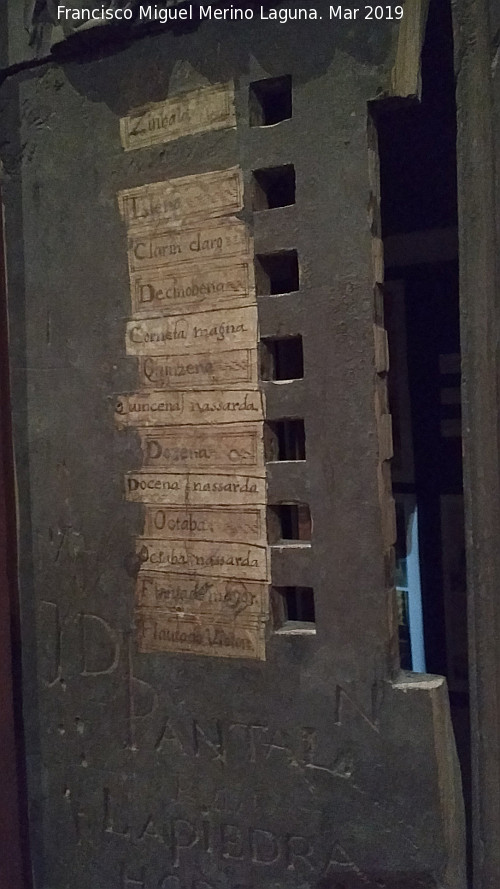 Francisco Miguel Merino Laguna. Mar 2019
Clarin claro
Decinobena
Corneta magna
Quinzena
Quincena nassarda
Dozena
Docena nassarda
Octaba
Octaba nassarda
Flautado mayor
Flautado Violon
D
N
PANTAL
LAPIEDRA